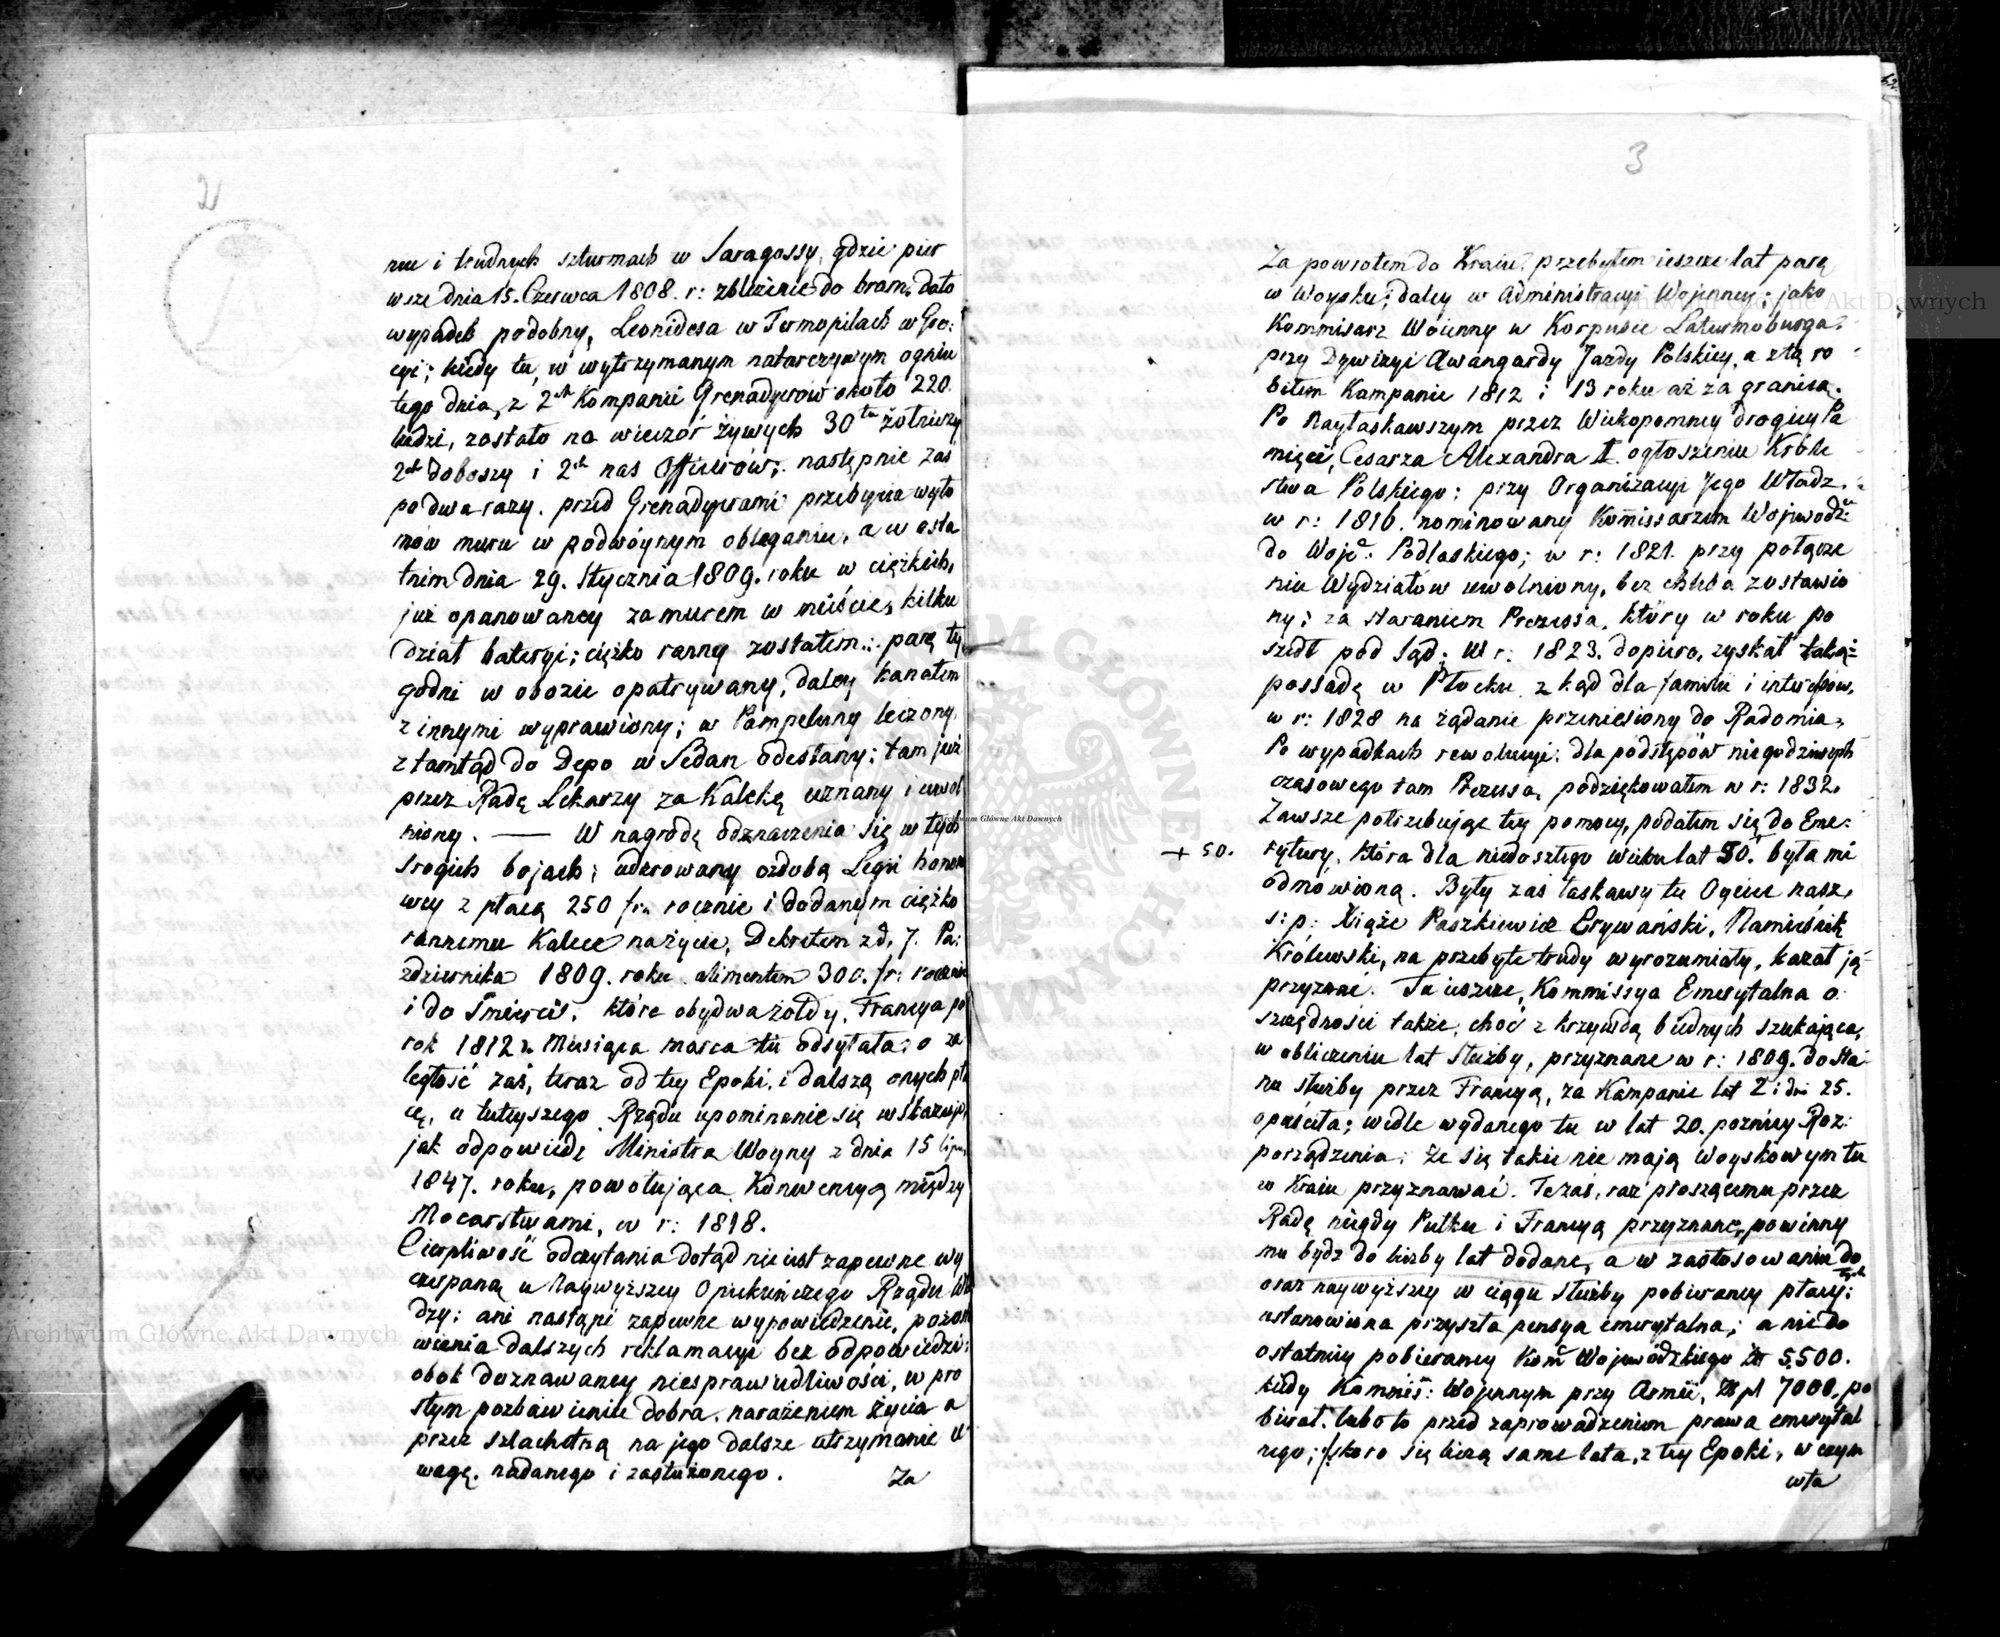 2
niu i trudnych szturmach w Saragossy, gdzie pier
wsze dnia 15. Czerwca 1808. r: zbliżenie do bram, dało
wypadek podobny, Leonidesa w Termopilach w Gre:
cyi; kiedy tu, w wytrzymanym natarczywym ogniu
tego dnia, z 2ch Kompanii Grenadyerów około 220.
ludzi, zostało na wieczór żywych 30tu żołnierzy
2ch doboszy i 2ch nas Officerów; następnie zaś
po dwa razy, przed Grenadyerami przebycia wyło
mów muru w podwóynym obleganiu, a w osta
tnim dnia 29. Stycznia 1809. roku w ciężkich,
już opanowaney za murem w mieście, kilku
dział bateryi; ciężko ranny zostałem; parę ty
godni w obozie opatrywany, daley kanałem
z innymi wyprawiony; w Pampeluny leczony,
ztamtąd do Depo w Sedan odesłany; tam już
przez Radę Lekarzy za Kalekę uznany i uwol
niony. — W nagrodę odznaczenia się w tych
srogich bojach; uderowany ozdobą Legii honoro
wey z płacą 250 fr. rocznie i dodanym ciężko
rannemu Kalece na życie, Dekretem z d. 7. Pa:
ździernika 1809. roku alimentem 300. fr: rocznie
i do śmierci, które obydwa żołdy, Francya po
rok 1812 r. Miesiąca marca tu odsyłała; o za
ległość zaś, teraz od tey Epoki, i dalszą onych pła
cę, u tuteyszego Rządu upominanie się wskazuje,
jak odpowiedź Ministra Woyny z dnia 15 lipca
1847. roku, powołująca Konwencyą między
Mocarstwami, w r: 1818.
Cierpliwość odczytania dotąd nie iest zapewne wy
czerpaną u Naywyższey Opiekuńczego Rządu Wła
dzy; ani nastąpi zapewne wypowiedzenie, pozos
wienia dalszych reklamacyi bez odpowiedzi:
obok doznawaney niesprawiedliwości, w pro
stym pozbawieniu dobra, narażeniem życia a
przez szlachetną na jego dalsze utrzymanie u
wagę, nadanego i zasłużonego.
Za
3
Za powrotem do Kraiu, przebyłem ieszcze lat parę
w Woysku; daley w Administracyi Wojenney; jako
Kommisarz Woienny w Korpusie Laturmoburga
przy Dywizyi Awangardy Jazdy Polskiey, a z tą ro
biłem Kampanie 1812 i 13 roku aż za granicą.
Po Nayłaskawszym przez Wiekopomney drogiey Pa
mięci, Cesarza Alexandra I. ogłoszeniu Króle
stwa Polskiego; przy Organizacyi Jego Władz,
w r: 1816. nominowany Kommissarzem Wojewodz:
do Wojc: Podlaskiego; w r: 1821. przy połącze
niu Wydziałow uwolniony, bez chleba zostawio
ny; za staraniem Prezessa, który w roku po
szedł pod Sąd; W r: 1823. dopiero, zyskał takąż
possadę w Płocku z kąd dla familii i interesów,
w r: 1828 na żądanie przeniesiony do Radomia,
Po wypadkach rewolucyi; dla podstępów niegodziwych
czasowego tam Prezessa, podziękowałem w r: 1832.
Zawsze potrzebując tey pomocy, podałem się do Eme:
+ 50.
rytury, która dla niedoszłego wieku lat 50. była mi
odmówioną. Były zaś łaskawy tu Ociec nasz,
s: p: Xiąże Paszkiewicz Erywański, Namiestnik
Królewski, na przebyte trudy wyrozumiały, kazał ją
przyznać. Tu ieszcze, Kommissya Emerytalna o
szczędności także, choć z krzywdą biednych szukająca,
w obliczeniu lat służby, przyznane w r: 1809. do sta
nu służby przez Francyą, za Kampanie lat 2 i dni 25.
opuściła; wedle wydanego tu w lat 20. pozniey Roz:
porządzenia; że się takie nie mają Woyskowym tu
w Kraiu przyznawać. Te zaś, raz proszącemu przez
Radę niegdy Pułku i Francyą przyznane, powinny
mu bydz do liczby lat dodane, a w zastosowaniu do
tych
oraz naywyższey w ciągu służby pobieraney płacy;
ustanowiona przyszła pensya emerytalna; a nie do
ostatniey pobieraney Kom: Wojewódzkiego Zł 5,500.
kiedy Kommis: Wojennym przy Armii, Zł pl 7000. po
bierał, lubo to przed zaprowadzeniem prawa emerytal
nego; skoro się liczą same lata, z tey Epoki, w czym
wła
Archiwum Główne Akt Dawnych